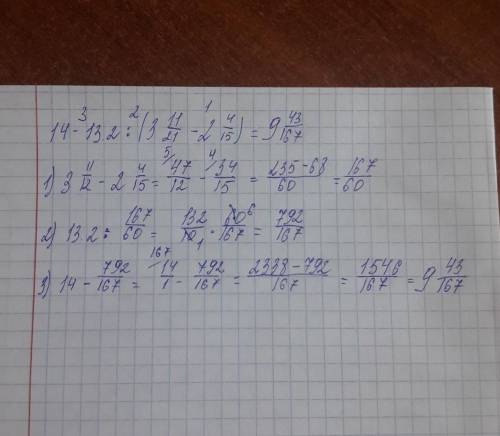 3 2 1
14 - 13.2 : (3 11/21 - 2 4/15) = 9 43/167
5 4
1) 3 11/12 - 2 4/15 = 47/12 - 34/15 = 235-68/60 = 167/60
2) 13.2 : 167/60 = 132/10 1 · 60 6/167 = 792/167
167
3) 14 - 792/167 = 14/1 - 792/167 = 2338-792/167 = 1546/167 = 9 43/167